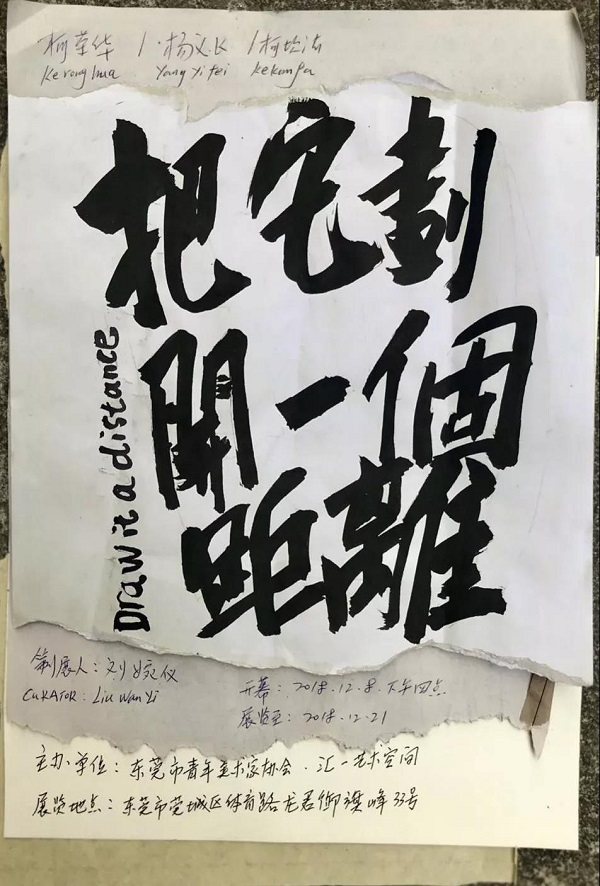 柯荣华 / 杨义飞 / 柯坎法
Ke rong hua Yang Yi fei Ke kan fa
把它劃
開一個
距離
Draw it a distance
策展人：刘婉仪
CURATOR: Liu Wan Yi
开幕：2018.12.8.下午四点
展览至：2018.12.21
主办单位：东莞市青年美术家协会·汇一艺术空间
展览地点：东莞市莞城区体育路龙君御旗峰33号